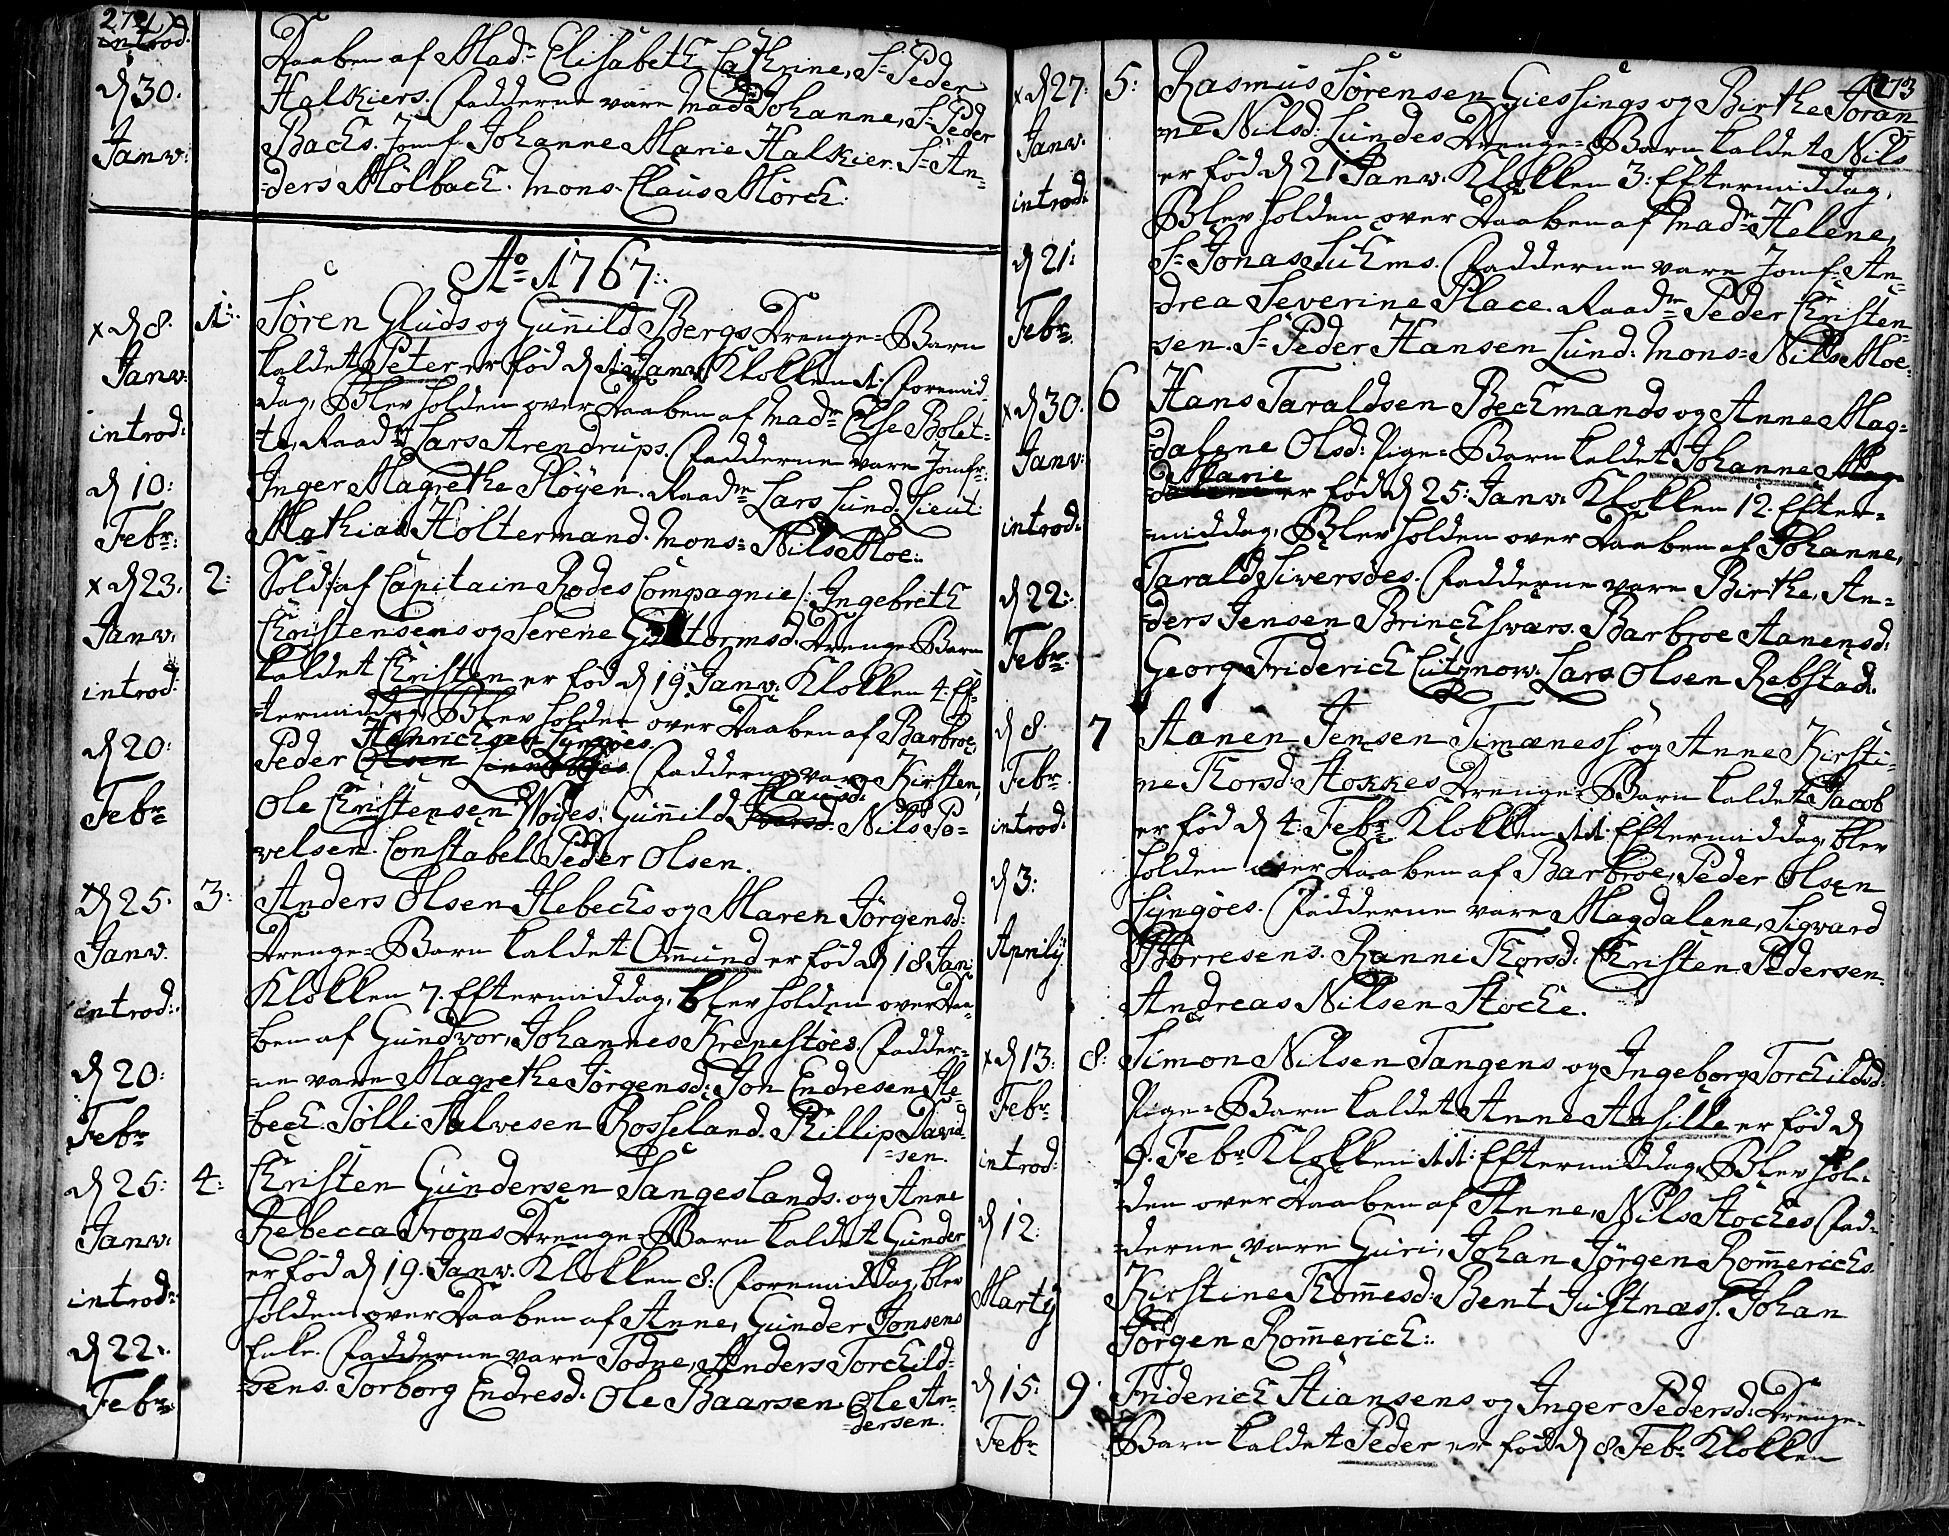 272
introd.
d 30.
Janv:
Daaben af Mad: Elisabeth Cathrine, Sr Peder
Halkiers. Fadderne vare Mad: Johanne, Sr Peder
Bachs. Jomf: Johanne Marie Halkier. Sr An-
ders Mölbach. Mons. Claus Mörch.
Ao 1767.
x d 8.
Janv:
introd:
d 10:
Febr:
1.
Sören Gluds og Gunnild Bergs Drenge-Barn
kaldet Peter er föd d 1 Janv: Klokken 1: Formid-
dag, Blev holden over Daaben af Madm Else Bolet-
te, Raadm Lars Arendrups. Fadderne vare Jomfr:
Inger Magrethe Plöyen. Raadm Lars Lund. Lieut
Mathias Holtermand. Mons: Nils Moe.
x d 23.
Janv.
introd:
d 20:
Febr
2:
Sold: /: af Capitain Rodes Compagnie :/ Ingebreth
Christensens og Serene Guttormsd: Drenge-Barn
kaldet Christen er föd d 19 Janv: Klokken 4: Ef-
termiddag, Blev holden over Daaben af Barbroe
Peder Olsen Fadderne vare Kirsten,
Ole Christensen Nöyes. Gunnild Clausd: Nils Po-
velsen. Constabel Peder Olsen.
x d 25.
Janv.
introd:
d 20:
Febr
3:
Anders Olsen Hebechs og Maren Jörgensd:
Drenge-Barn kaldet Ommund er föd d 18 Jan:
Klokken 7. Eftermiddag, blev holden over Daa-
ben af Gundvor, Johannes Krenestöes. Fadder-
ne vare Magrethe Jörgensd: Jon Endresen He-
bech. Tölli Salvesen Rosseland. Phillip David-
sen.
d 25:
Janv.
introd:
d 22:
Febr
4:
Christen Gundersen Sangeslands. og Anne
Rebecca Froms Drenge-Barn kaldet Gunder
er föd d 19. Janv. Klokken 8: Formiddag, blev
holden over Daaben af Anne, Gunder Jonsens
Enke. Fadderne vare Todne, Anders Torchild-
sens. Torborg Endresd: Ole Baarsen. Ole An-
dersen.
273
x d 27:
Janv.
introd:
d 21:
Febr
5:
Rasmus Sörensen Giessings og Birthe Joran-
ne Nilsd: Lundes Drenge-Barn kaldet Nils
er föd d 21 Janv. Klokken 3: Eftermiddag,
Blev holden over Daaben af Madm Helene,
Sr Jonas Suhms. Fadderne vare Jomf: An-
drea Severine Place. Raadm Peder Christen-
sen. Sr Peder Hansen Lund. Mons: Nils Moe.
x d 30.
Janv:
introd:
d 22:
Febr
6
Hans Taraldsen Bechmands og Anne Mag-
dalene Olsd: Pige-Barn kaldet Johanne Mag-
Marie
er föd d 25: Janv. Klokken 12. Efter-
middag, Blev holden over Daaben af Johanne,
Tarald Siversöes. Fadderne vare Birthe, An-
ders Jensen Brinchsværs. Barbroe Aanensd:
Georg Friderich Lutznow. Lars Olsen Rebstad.
d 8
Febr.
introd:
d 3:
Aprily
7
Aanen Jensen Timæness og Anne Kirsti-
ne Thorsd: Stokkes Drenge-Barn kaldet Jacob
er föd d 4: Febr Klokken 11: Eftermiddag, blev
holden over Daaben af Barbroe, Peder Olsen
Lyngöes. Fadderne vare Magdalene, Sigvard
Börresens. Ranni Thorsd: Christen Pedersen.
Andreas Nilsen Stoche.
x d 13:
Febr
introd:
d 12:
Marty
8:
Simon Nilsen Tangens og Ingeborg Torchildsd:
Pige-Barn kaldet Anne Aasille er föd d
9: Febr Klokken 11: Eftermiddag, Blev hol-
den over Daaben af Anne, Nils Stoches. Fad-
derne vare Guri, Johan Jörgen Rommerichs.
Kirstine Thommesd: Bent Justnæss. Johan
Jörgen Rommerich.
d 15:
Febr
9.
Friderich Stiansens og Inger Pedersd: Drenge-
Barn kaldet Peder er föd d 8 Febr Klokken